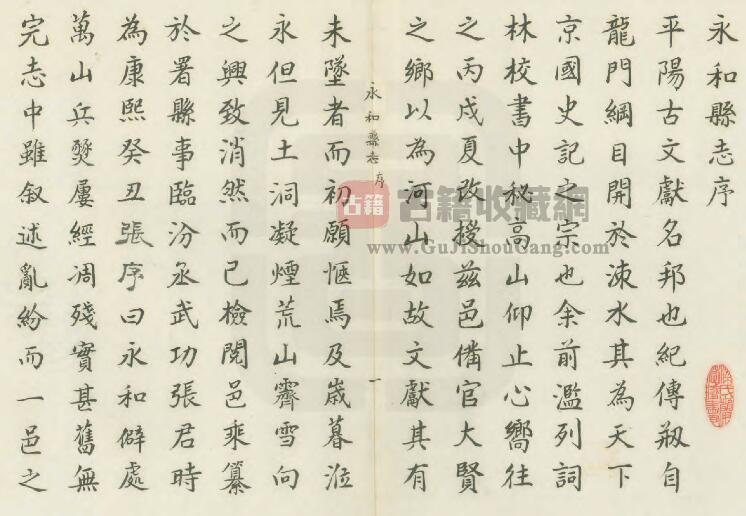 永和縣志序
平陽古文獻名邦也紀傳剏自
龍門綱目開於涑水其為天下
京國史記之宗也余前濫列詞
林校書中秘高山仰止心嚮往
之丙戌夏改授茲邑備官大賢
之鄉以為河山如故文獻其有
永和縣志序
一
未墜者而初願愜焉及歲暮涖
永但見土洞凝煙荒山霽雪向
之興致消然而已檢閱邑乘纂
於署縣事臨汾丞武功張君時
為康熙癸丑張序曰永和僻處
萬山兵燹屢經凋殘實甚舊無
完志中雖叙述亂紛而一邑之
古籍
古籍收藏網
www.GuJiShouCang.com